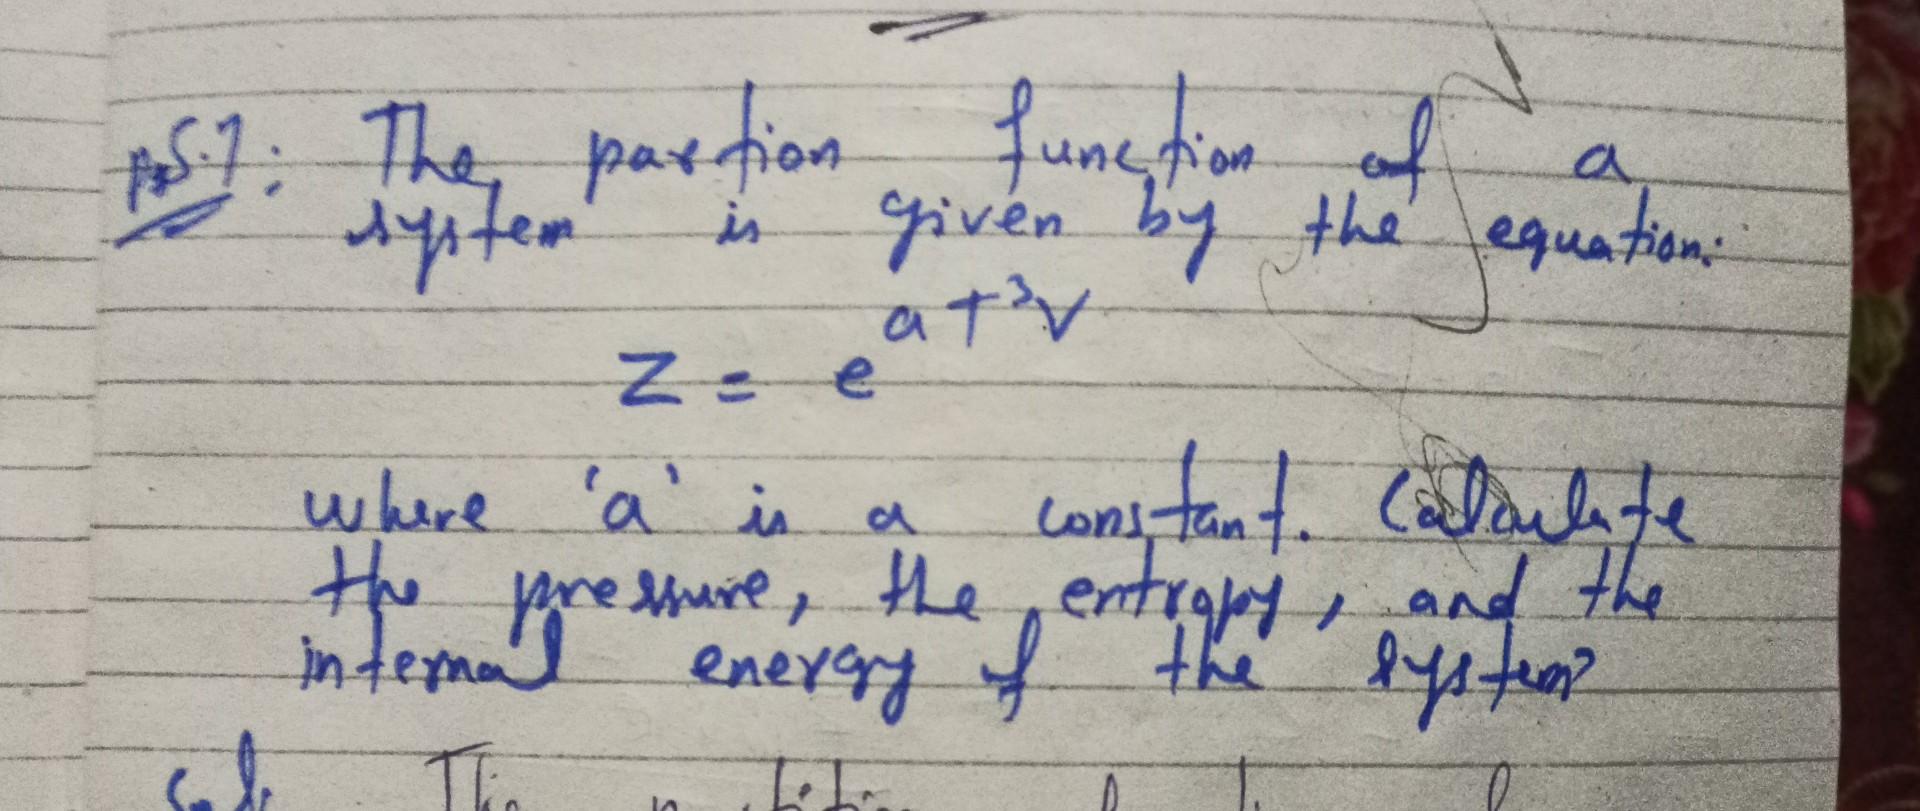 The partion function of a
system is given by the equation:
Z = e^{aT³V}
where 'a' is a constant. Calculate
the pressure, the entropy, and the
internal energy of the system?
Sol: